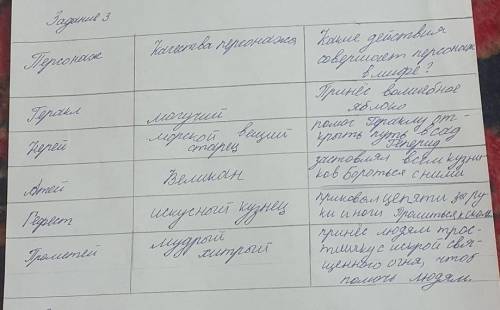 Задание 3.
Персонаж
Качества персонажа
Какие действия
совершает персонаж
в мифе?
Геракл
могучий
Принёс волшебное
яблоко
Нерей
морской вещий
старец
помог Гераклу от-
крыть путь в сад
Геперид
Атей
Великан
заставлял всех
ков бороться с ними
Гефест
искусный кузнец
приковал цепями за ру
ки и ноги Прометья к скале
Прометей
мудрый
хитрый
принёс людям трос-
тинку с искрой свя-
щенного огня, чтоб
помочь людям.